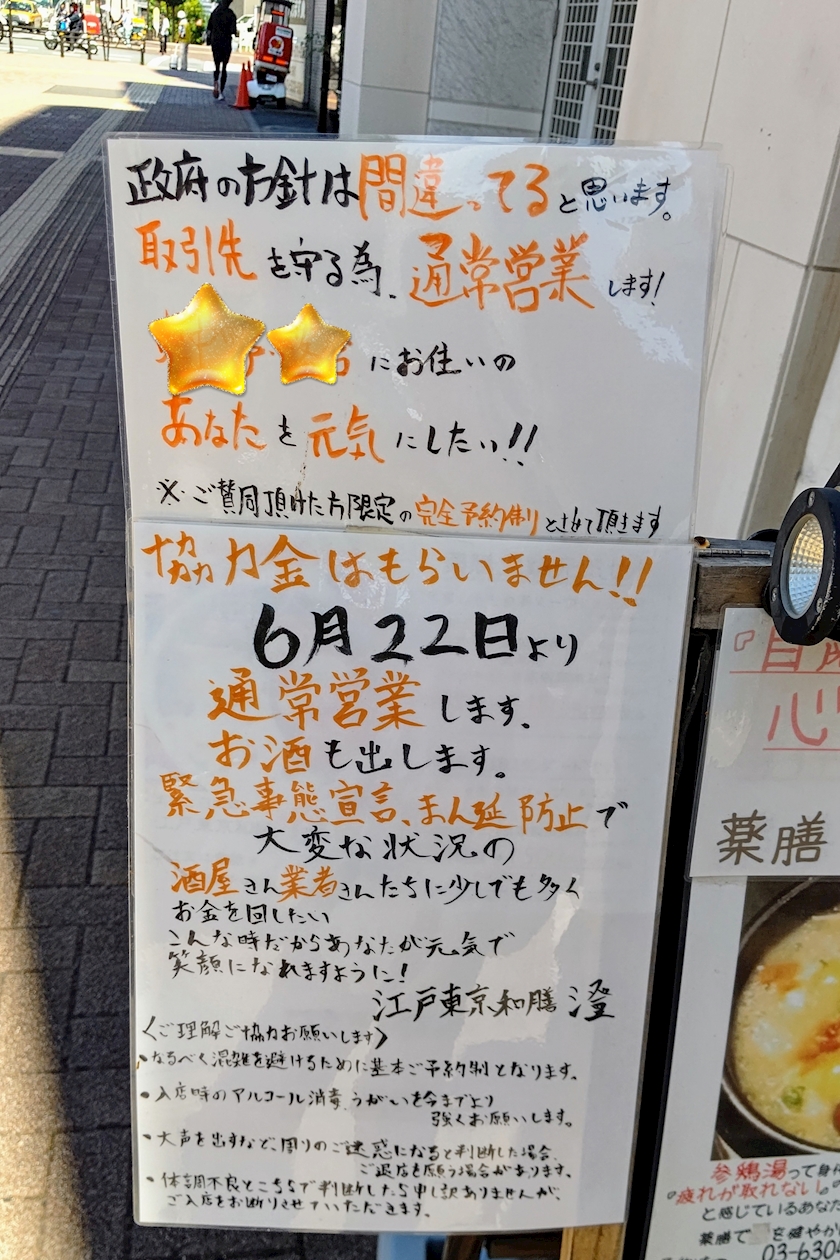 政府の方針は間違ってると思います。
取引先を守る為、通常営業します!
にお住いの
あなたを元気にしたい!!
※ご賛同頂けた方限定の完全予約制とさせて頂きます
協力金はもらいません!!
6月22日より
通常営業します。
お酒も出します。
緊急事態宣言、まん延防止で
大変な状況の
酒屋さん業者さんたちに少しでも多く
お金を回したい
こんな時だからあなたが元気で
笑顔になれますように!
江戸東京和膳 澄
〈ご理解ご協力お願いします〉
・なるべく混雑を避けるために基本ご予約制となります。
・入店時のアルコール消毒、うがいを今までより
強くお願いします。
・大声を出すなど、周りのご迷惑になると判断した場合、
ご退店を願う場合があります。
・体調不良とこちらで判断したら申し訳ありませんが、
ご入店をお断りさせていただきます。
心
薬膳
参鶏湯って
"疲れが取れない"
と感じているあな
薬膳で
を健やか
03-630